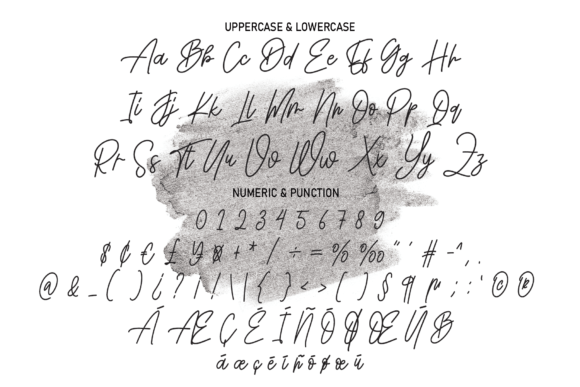 UPPERCASE & LOWERCASE
Aa Bb Cc Dd Ee Ff Gg Hh
Ii Jj Kk Ll Mm Nn Oo Pp Qq
Rr Ss Tt Uu Vv Ww Xx Yy Zz
NUMERIC & PUNCTION
0 1 2 3 4 5 6 7 8 9
$ ¢ € £ ¥ ¤ + * / ÷ = % ‰ " ' # - ^ , .
@ & _ ( ) ¿ ? ! / \ | { } < > ( ) § ¶ µ ; : ' © ®
Á Æ Ç É Í Ñ Ó Ø Œ Ú ß
á æ ç é í ñ ó ø œ ú